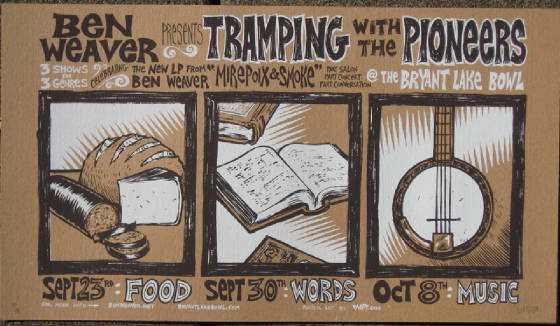 BEN WEAVER PRESENTS TRAMPING WITH THE PIONEERS
3 SHOWS 3 GENRES CELEBRATING THE NEW LP FROM BEN WEAVER "MIREPOIX & SMOKE" PART SALON PART CONCERT PART CONVERSATION @ THE BRYANT LAKE BOWL
SEPT 23RD: FOOD
SEPT 30TH: WORDS
OCT 8TH: MUSIC
FOR MORE INFO BENWEAVER.NET BRYANTLAKEBOWL.COM